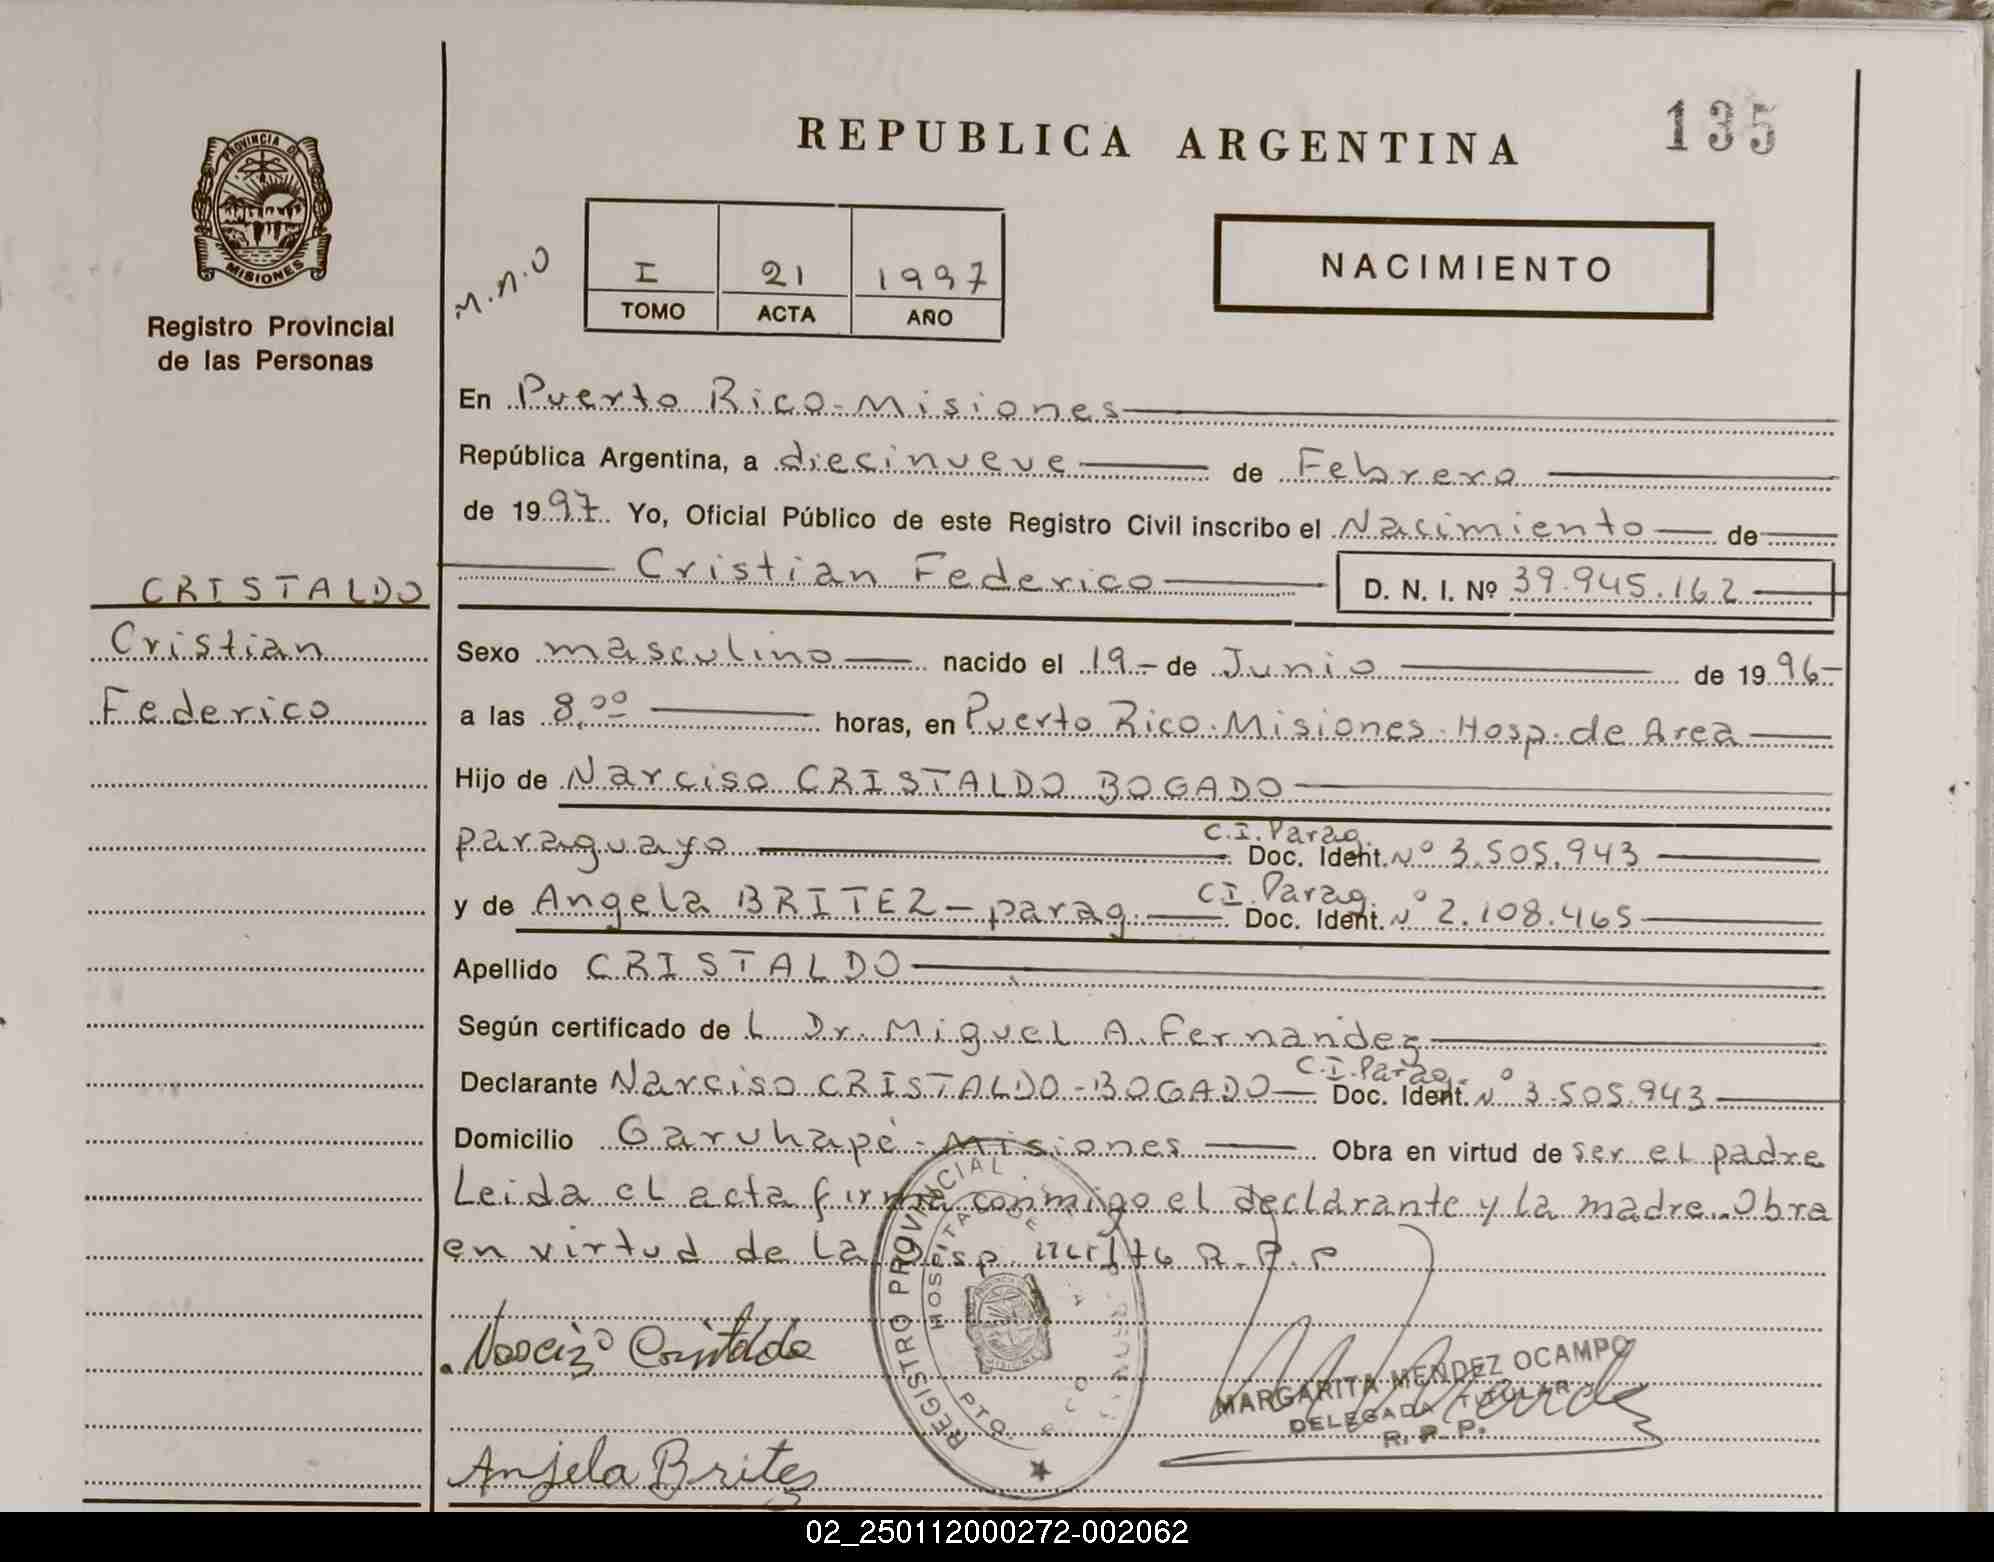 REPUBLICA ARGENTINA
135
PROVINCIA DE
MISIONES
Registro Provincial
de las Personas
M.N.O
I 21 1997
TOMO ACTA AÑO
NACIMIENTO
En Puerto Rico - Misiones
República Argentina, a diecinueve de Febrero
de 1997 Yo, Oficial Público de este Registro Civil inscribo el Nacimiento de
Cristian Federico D. N. I. Nº 39.945.162
CRISTALDO
Cristian
Federico
Sexo masculino nacido el 19 - de Junio de 1996 -
a las 8,00 horas, en Puerto Rico - Misiones - Hosp. de Area
Hijo de Narciso CRISTALDO BOGADO
paraguayo C.I. Parag. Doc. Ident. Nº 3.505.943
y de Angela BRITEZ - parag. C.I. Parag. Doc. Ident. Nº 2.108.465
Apellido CRISTALDO
Según certificado de L Dr. Miguel A. Fernandez
Declarante Narciso CRISTALDO - BOGADO C.I. Parag. Doc. Ident. Nº 3.505.943
Domicilio Garuhapé - Misiones Obra en virtud de ser el padre
Leida el acta firma conmigo el declarante y la madre. Obra
en virtud de la R.P.P
REGISTRO PROVINCIAL
HOSPITAL DE
PTO. RICO
Narcizo Cristaldo
MARGARITA MENDEZ OCAMPO
DELEGADA TITULAR
R. P. P.
Anjela Britez
02_250112000272-002062